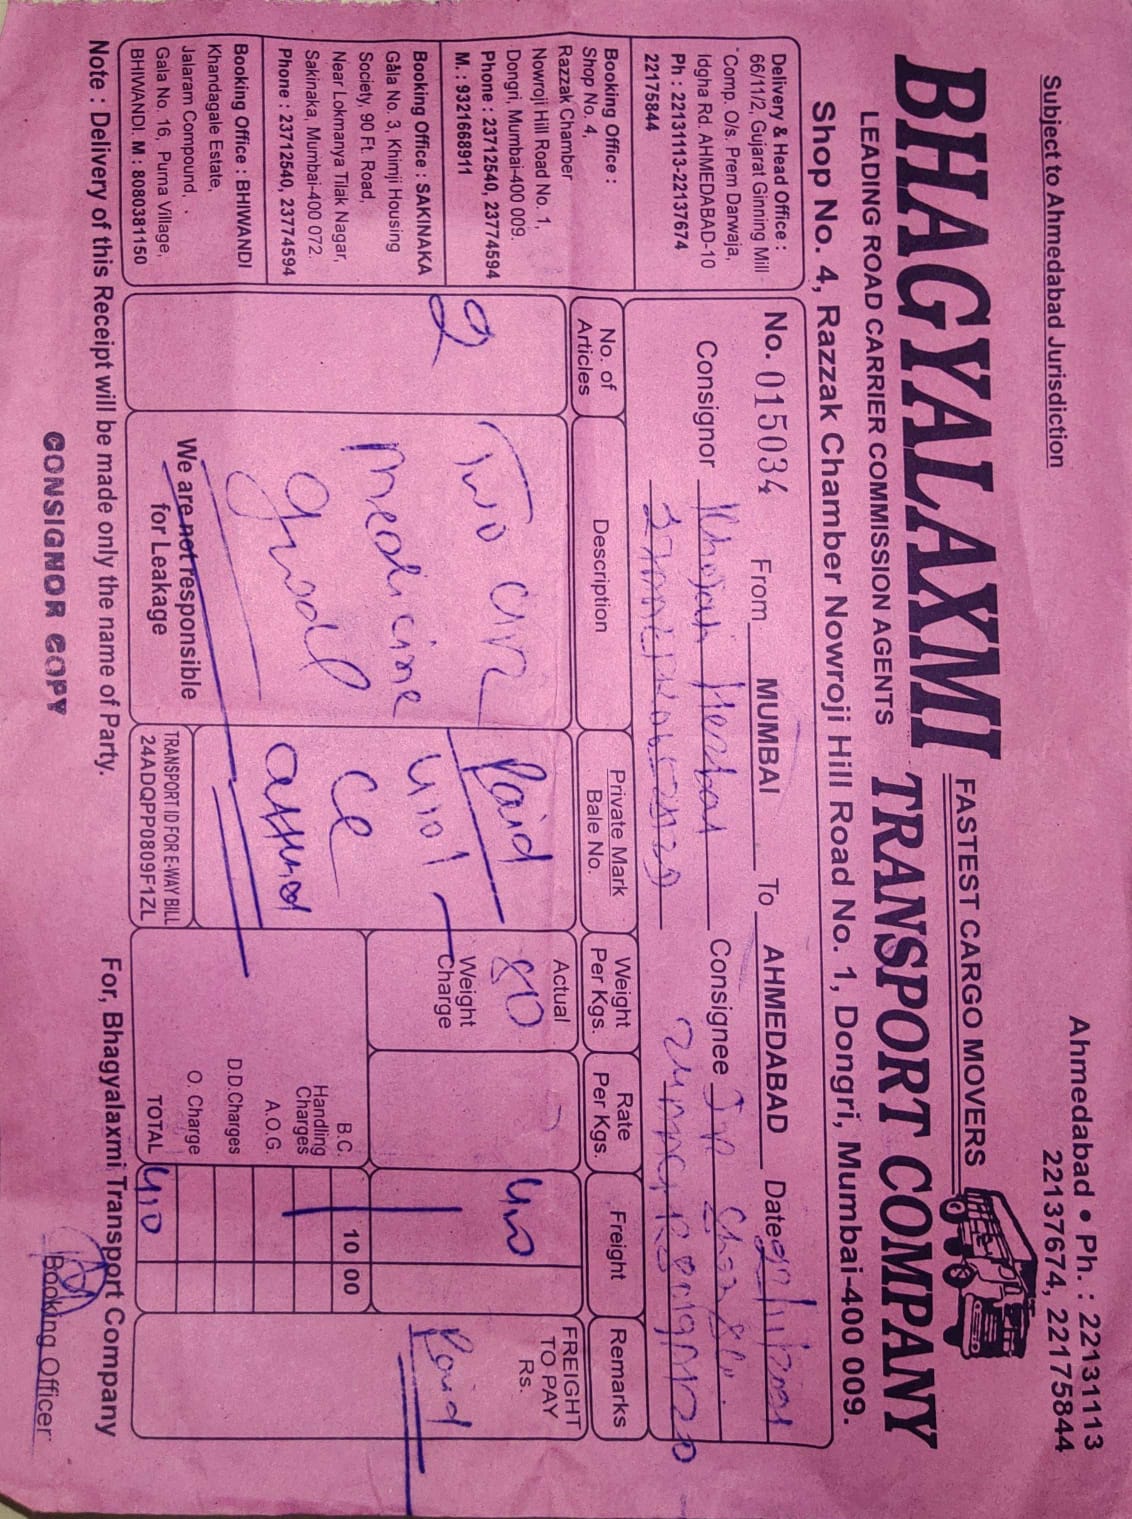 Subject to Ahmedabad Jurisdiction
Ahmedabad • Ph. : 22131113
22137674, 22175844
FASTEST CARGO MOVERS
BHAGYALAXMI TRANSPORT COMPANY
LEADING ROAD CARRIER COMMISSION AGENTS
Shop No. 4, Razzak Chamber Nowroji Hill Road No. 1, Dongri, Mumbai-400 009.
Delivery & Head Office :
66/11/2, Gujarat Ginning Mill
Comp. O/s. Prem Darwaja,
Idgha Rd. AHMEDABAD-10
Ph : 22131113-22137674
22175844
Booking Office :
Shop No. 4,
Razzak Chamber
Nowroji Hill Road No. 1,
Dongri, Mumbai-400 009.
Phone : 23712540, 23774594
M. : 9321668911
Booking Office : SAKINAKA
Gala No. 3, Khimji Housing
Society, 90 Ft. Road,
Near Lokmanya Tilak Nagar,
Sakinaka, Mumbai-400 072.
Phone : 23712540, 23774594
Booking Office : BHIWANDI
Khandagale Estate,
Jalaram Compound,
Gala No. 16, Purna Village,
BHIWANDI. M : 8080381150
No. 015034 From MUMBAI To AHMEDABAD Date
Consignor
Consignee
No. of Articles
Description
Private Mark Bale No.
Weight Per Kgs.
Rate Per Kgs.
Freight
Remarks
2
Two
medicine
Paid
Actual
80
Weight Charge
FREIGHT TO PAY Rs.
Paid
B.C. 10 00
Handling Charges
A.O.G.
D.D.Charges
O. Charge
TOTAL 410
We are not responsible
for Leakage
TRANSPORT ID FOR E-WAY BILL
24ADQPP0809F1ZL
Note : Delivery of this Receipt will be made only the name of Party.
For, Bhagyalaxmi Transport Company
CONSIGNOR COPY
Booking Officer